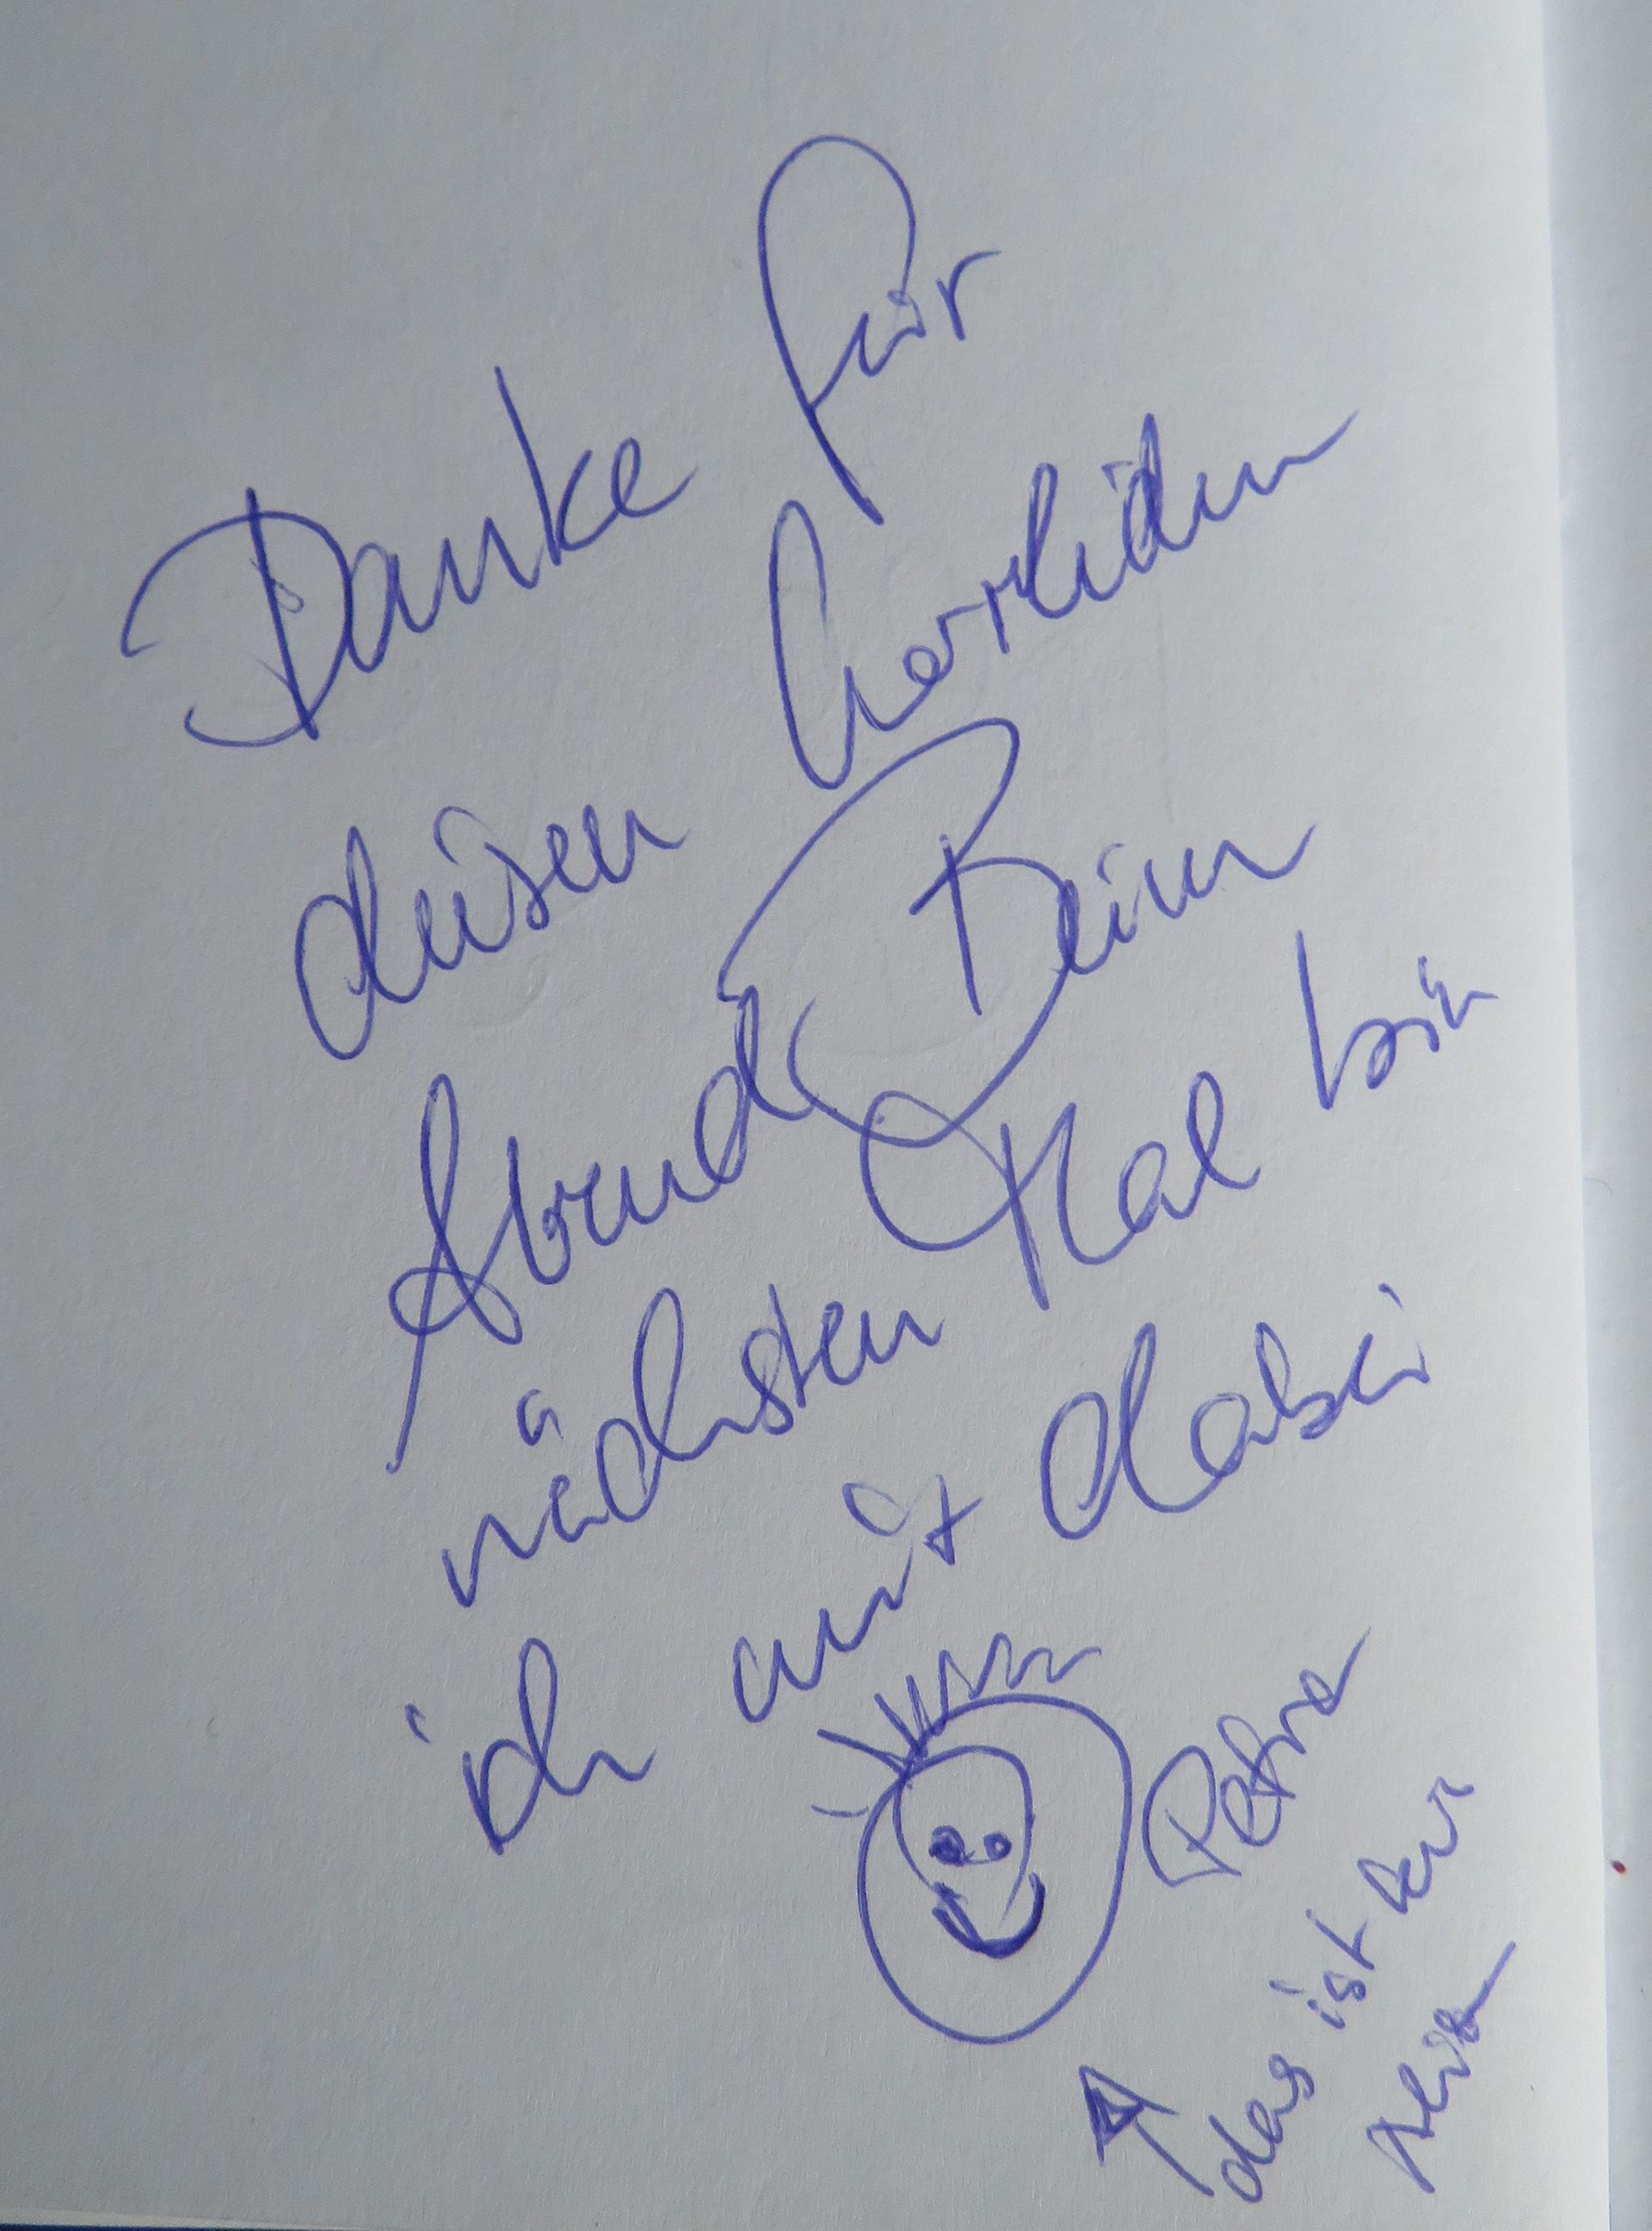 Danke für
diesen herrlichen
Abend Beim
nächsten Mal bin
ich mit dabei
Petra
das ist ein